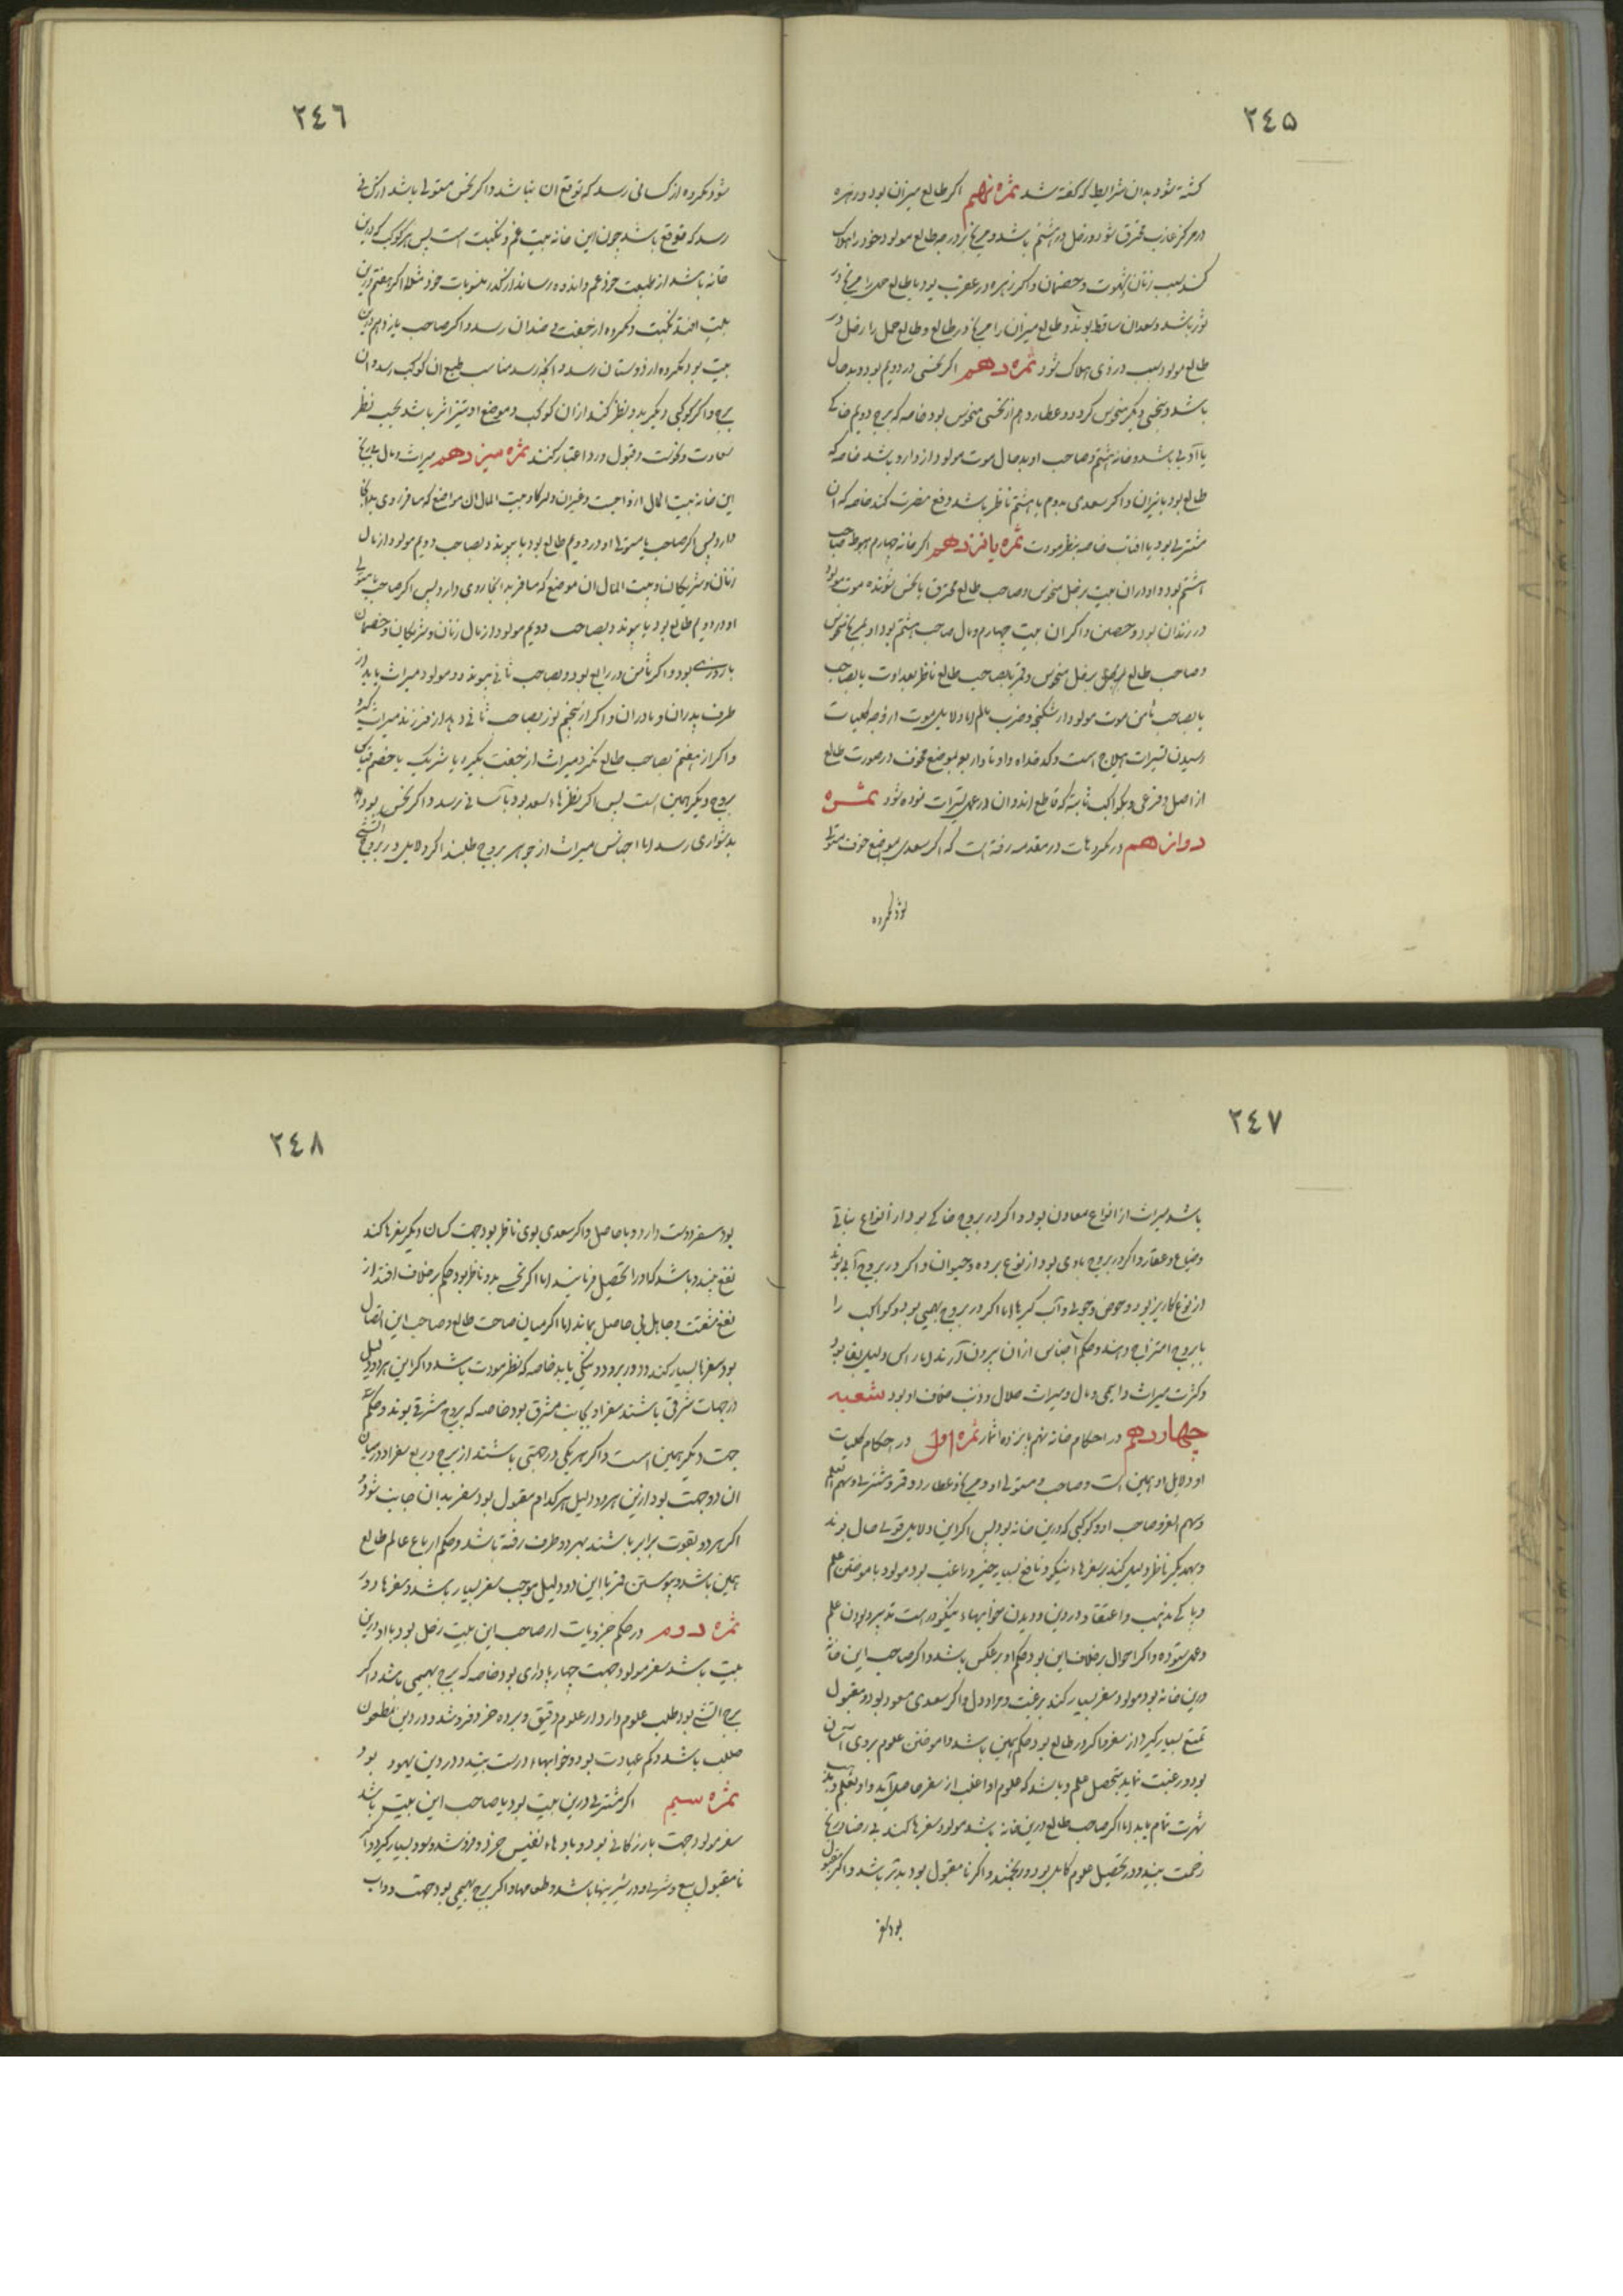 ٢٤٥
کشته شود بدان شرایط که گفته شد ثمره نهم اکر طالع میزان بود و زهره
در مرکز غارب محترق شود و زحل در هشتم باشد و مریخ بر درجه طالع مولود خود را هلاک
کند بسبب زنان و شهوت و خصمان و اکر زهره در عقرب بود یا طالع حمل را مریخ در
ثور باشد و سعدان ساقط بوند و طالع میزان را مریخ در طالع و طالع حمل را زحل در
طالع مولود بسبب دزدی هلاک شود ثمره دهم اکر نحسی در دویم بود و بدحال
باشد و بنحسی دیکر منحوس کردد و عطارد هم از نحسی منحوس بود خاصه که برج دویم خاکی
یا آبی باشد و خانه هشتم و صاحب او بدحال موت مولود از دارو باشد خاصه که
طالع بود یا میزان و اکر سعدی بدوم یا هشتم ناظر باشد دفع مضرت کند خاصه که ان
مشتری بود یا افتاب خاصه بنظر مودت ثمره یازدهم اکر خانه چهارم هبوط صاحب
هشتم بود و او در ان بیت بزحل منحوس و صاحب طالع محترق یا نحس شونده موت مولود
در زندان بود و حصین و اکر ان بیت چهارم وبال صاحب هشتم بود او بمریخ منحوس
و صاحب طالع بزحل منحوس و قمر بصاحب طالع ناظر بعداوت یا بصاحب
یا بصاحب ثامن موت مولود از شکنجه و ضرب بالم اما دلایل موت از وجه کلیات
رسیدن تسیرات هیلاج است و کدخداه و اوتاد او بموضع مخوف در صورت طالع
از اصل و فرعی و بکواکب ثابته که قاطع اند و ان در عمل تسیرات نموده شود ثمره
دوازهم در مکروهات در مقدمه رفته است که اکر سعدی بموضع خوف مستولی
شود مکروه
٢٤٦
شود مکروه از کسانی رسد که توقع ان نباشد و اکر نحس مستولی باشد از کسانی
رسد که متوقع باشد چون این خانه بیت غم و نکبت است پس هر کوکب که درین
خانه باشد از طبیعت خود غم و اندوه رساند از کدر منسوبات خود مثلا اکر هفتم درین
بیت افتد نکبت و مکروه از جفت و ضدان رسد و اکر صاحب یازدهم درین
بیت بود مکروه از دوستان رسد و انچه رسد مناسب طبع ان کوکب رسد و ان
برج و اکر کوکبی دیکر بدو نظر کند از ان کوکب و موضع او نیز اثر باشد بحسب نظر
سعادت و نحوست و قبول و رد اعتبار کنند ثمره سیزدهم میراث و مال بتاریخ
این خانه بیت المال ازواجست و غیران و شرکا و بیت المال ان مواضع که مسافر روی بدانجا
دارد پس اکر صاحب یا مستولی او در دویم طالع بود یا پیوند بصاحب دویم مولود از مال
زنان و شریکان و بیت المال ان موضع که مسافر بدانجا روی دارد پس اکر صاحب یا مستولی
او در دویم طالع بود یا پیوند بصاحب دویم مولود از مال زنان و شریکان و خصمان
با روزی بود و اکر ثامن در رابع بود و بصاحب ثانی پیوندد مولود میراث یابد از
طرف پدران و مادران و اکر از پنجم نور بصاحب ثانی دهد از فرزند میراث کیرد
و اکر از هفتم بصاحب طالع نکرد میراث از جفت بکیرد یا شریک یا خصم قیاس
بروج دیکر همین است پس اکر نظرها سعد بود بآسانی رسد و اکر نحس بود
بدشواری رسد اما اجناس میراث از جوهر بروج طلبند اکر دلایل در بروج آتشی
٢٤٧
باشد میراث از انواع معادن بود و اکر در بروج خاکی بود از انواع نباتی
و ضیاع و عقار و اکر در بروج بادی بود از نوع برده و حیوان و اکر در بروج آبی بوند
از نوع کاریز بود و حوض و جوی و آب کیرها اما اکر در بروج بهیمی بود و کواکب را
با بروج امتزاج دهند و حکم اجناس از ان بیرون آرند اما راس دلیل بقا بود
و کثرت میراث و ابهی و مال و میراث حلال و ذنب خلاف او بود شعبه
چهاردهم در احکام خانه نهم پانزده اثمار ثمره اول در احکام کلیات
او دلایل او همین است و صاحب و مستولی او و مریخ و عطارد و قمر و مشتری و سهم العلم
و سهم السفر و صاحب او و کوکبی که درین خانه بود پس اکر این دلایل قوی حال بوند
و بهمدیکر ناظر دلیل کند بر سفرهاء نیکو و نافع بسیار خیر و راغب بود مولود باموختن علم
و پاکی مذهب و اعتقاد و در دین و دیدن خوابهاء نیکو و راست تدبیر بودن علم
و عمل ستوده و اکر احوال برخلاف این بود حکم او برعکس باشد و اکر صاحب این خانه
درین خانه بود مولود سفر بسیار کند برغبت و مراد دل و اکر سعدی مسعود بود و مقبول
تمتع بسیار کیرد از سفر و اکر در طالع بود حکم همین باشد و اموختن علوم بر وی آسان
بود و رغبت نماید بتحصیل علم و باشد که علوم او اغلب از سفر حاصل آید و او بعلم و مذهب
شهرت تمام یابد اما اکر صاحب طالع درین خانه باشد مولود سفرها کند بی رضا و رنج
زحمت بیند و در تحصیل علوم کاهل بود و رنجمند و اکر نامقبول بود بدتر باشد و اکر مقبول
بود سفر
٢٤٨
بود سفر دوست دارد و با حاصل و اکر سعدی بوی ناظر بود جهت کسان دیکر سفرها کند
نفع بیند و باشد که او را تحصیل فرمایند اما اکر نحسی بدو ناظر بود حکم برخلاف افتد از
نفع منفعت و جاهل بی حاصل بماند اما اکر میان صاحب طالع و صاحب این اتصال
بود سفرها بسیار کند و دور برود و نیکی یابد خاصه که نظر مودت باشد و اکر این هر دو دلیل
در جهات شرقی باشند سفر او بجانب مشرق بود خاصه که بروج مشرقی بوند و حکم
جهت دیکر همین است و اکر هر یکی در جهتی باشند از برج و ربع سفر او در میان
ان دو جهت بود ازین هر دو دلیل هر کدام مقبول بود سفر بدان جانب شود و
اکر هر دو بقوت برابر باشند بهر دو طرف رفته باشد و حکم ارباع عالم طالع
همین باشد و پیوستن قمر با این دو دلیل موجب سفر بسیار باشد و سفرها دور
ثمره دوم در حکم جزویات ار صاحب این بیت زحل بود یا او درین
بیت باشد سفر مولود جهت چهارپاداری بود خاصه که برج بهیمی باشد و اکر
برج انسی بود طلب علوم دارد از علوم دقیق و برده خرد و فروشد و در دین مطعون
صلب باشد و کم عبادت بود و خوابهاء درست بیند و در دین یهود بود
ثمره سیم اکر مشتری درین بیت بود یا صاحب این بیت باشد
سفر مولود جهت بازرکانی بود و بادهاء نفیس خرد و فروشد و سود بسیار کیرد و اکر
نامقبول بیع و شری او در شیرینیها باشد و طعامها و اکر برج بهیمی بود جهت دواب